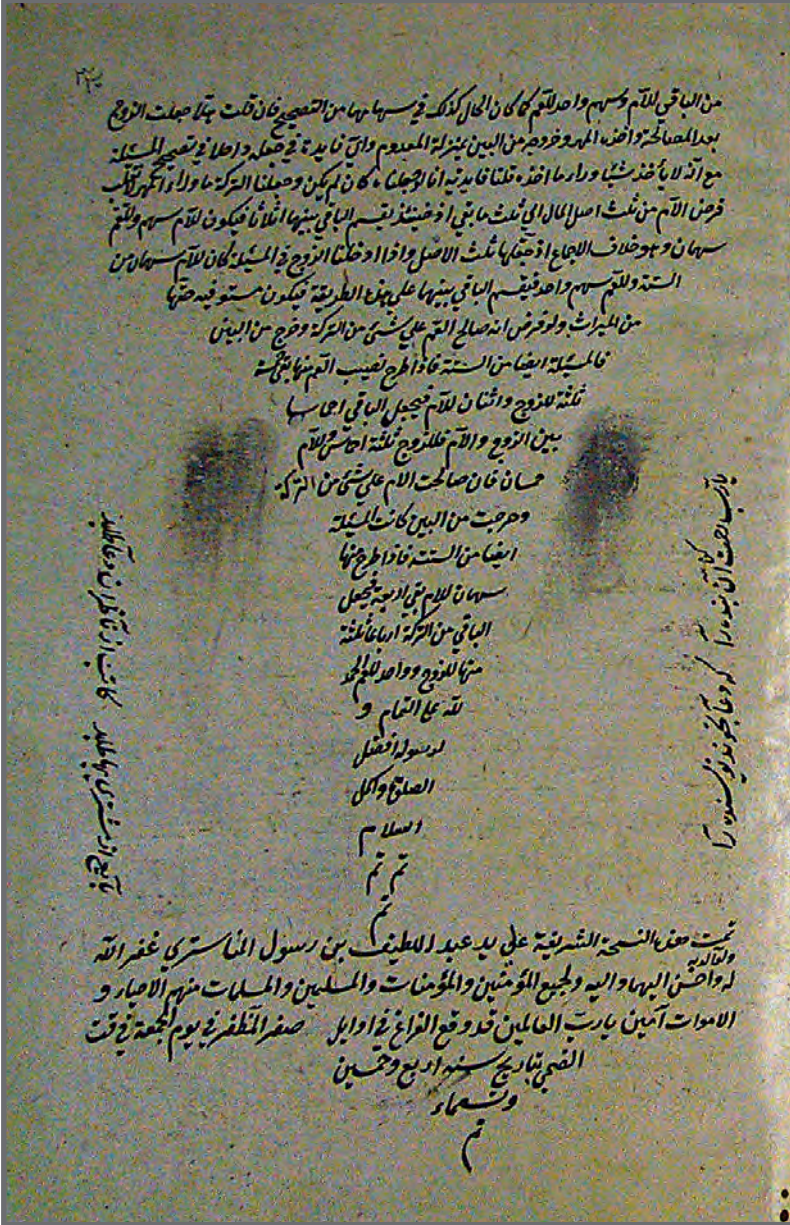 من الباقي للأم وسهم واحد للعم كما كان الحال كذلك في سهامهما من التصحيح فان قلت هلا جعلت الزوج
بعد المصالحة واخذه المهر وخروجه من البين بمنزلة المعدوم واي فايدة في جعله داخلا في تصحيح المسئلة
مع انه لا يأخذ شيئا وراء ما اخذه قلنا فايدته انا لو جعلناه كان لم يكن وجعلنا التركة ما وراء المهر لانقلب
فرض الأم من ثلث اصل المال الي ثلث ما بقي اذ حينئذ يقسم الباقي بينهما اثلاثا فيكون للأم سهم وللعم
سهمان وهو خلاف الاجماع اذ حقها ثلث الاصل واذا ادخلنا الزوج في المسئلة كان للأم سهمان من
الستة وللعم سهم واحد فيقسم الباقي بينهما علي هذه الطريقة فيكون مستوفية حقها
من الميراث ولو فرض انه صالح العم علي شئ من التركة وخرج من البين
فالمسئلة ايضا من الستة فاذا طرح نصيب العم منها بقي خمسة
ثلثة للزوج واثنان للأم فيجعل الباقي اخماسا
بين الزوج والأم فللزوج ثلثة اخماس وللأم
خمسان فان صالحت الام علي شئ من التركة
وخرجت من البين كانت المسئلة
ايضا من الستة فاذا طرح منها
سهمان للام بقي اربعة فيجعل
الباقي من التركة ارباعا ثلثة
منها للزوج وواحد للعم الحمد
لله علي التمام و
لرسوله افضل
الصلوة واكمل
السلام
تم تم
تم
تمت هذه النسخة الشريفة علي يد عبد اللطيف بن رسول المناستري غفر الله
له ولوالديه واحسن اليهما واليه ولجميع المؤمنين والمؤمنات والمسلمين والمسلمات منهم الاحياء و
الاموات آمين يا رب العالمين قد وقع الفراغ في اوايل صفر المظفر في يوم الجمعة في وقت
الضحي بتاريخ سنه اربع وخمسين
وتسعماء
تم
يا رب رحمت كن آن بنده را
كه دعا كويد نويسنده را
كاتب از ناظران دعا طلبد
بايع از مشتري بها طلبد